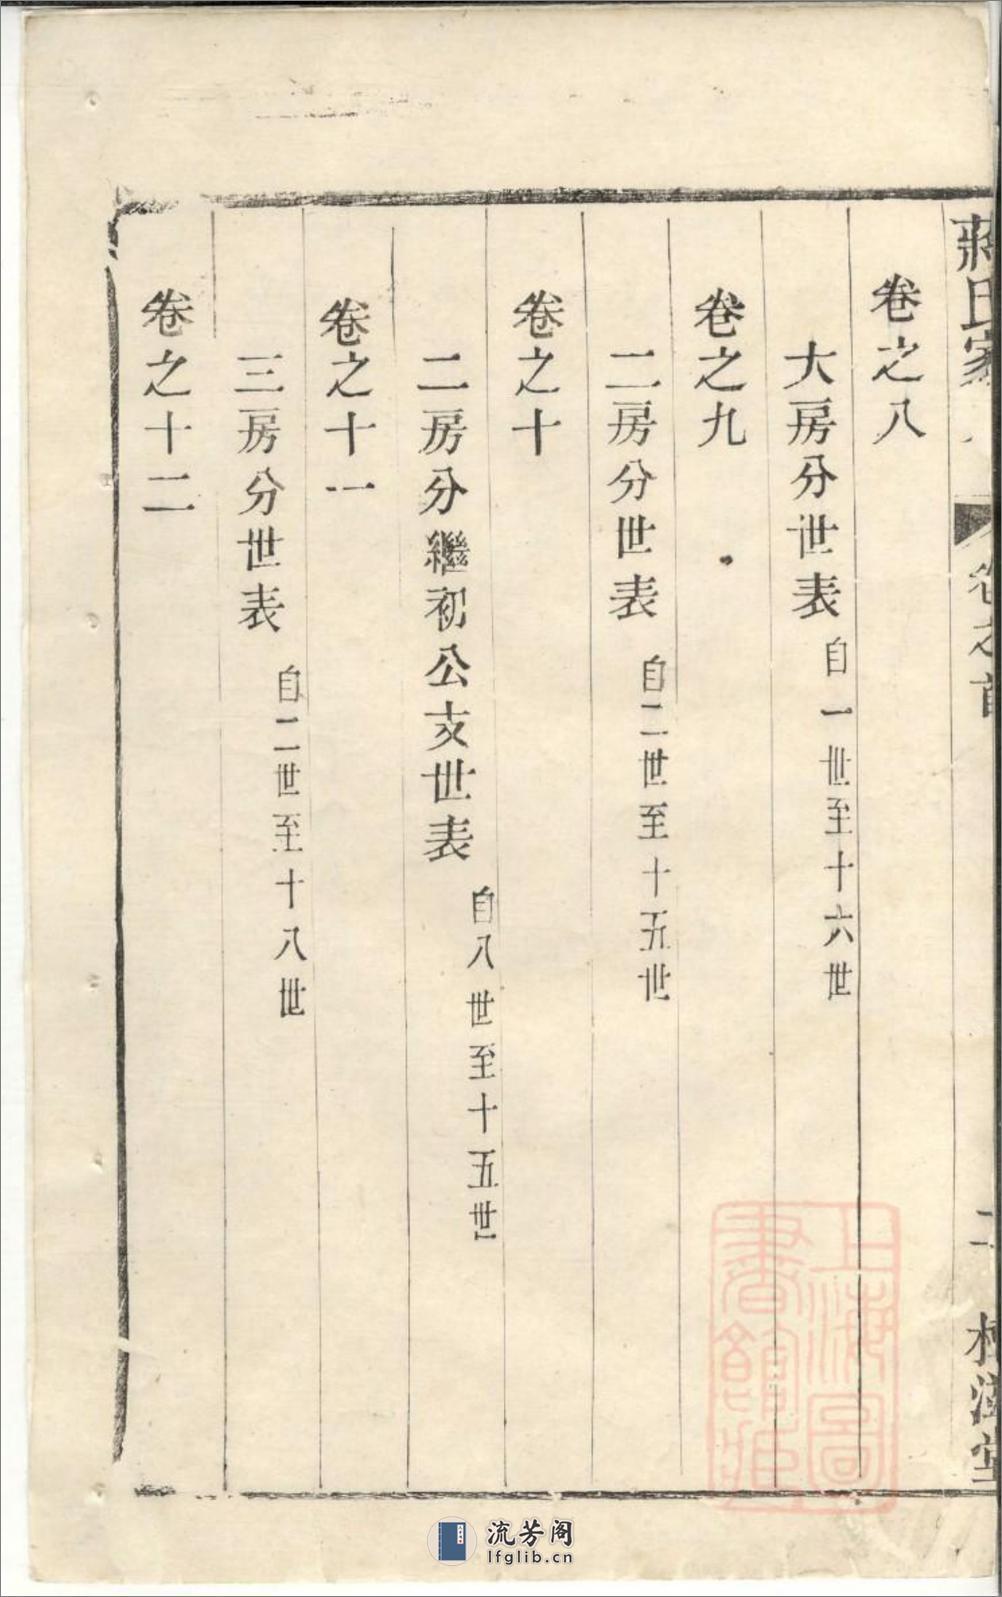 蔣氏家
卷之首
二
堂
卷之八
大房分世表 自一世至十六世
卷之九
二房分世表 自二世至十五世
卷之十
二房分繼初公支世表 自八世至十五世
卷之十一
三房分世表 自二世至十八世
卷之十二
上海圖
書館藏
流芳阁
lfglib.cn